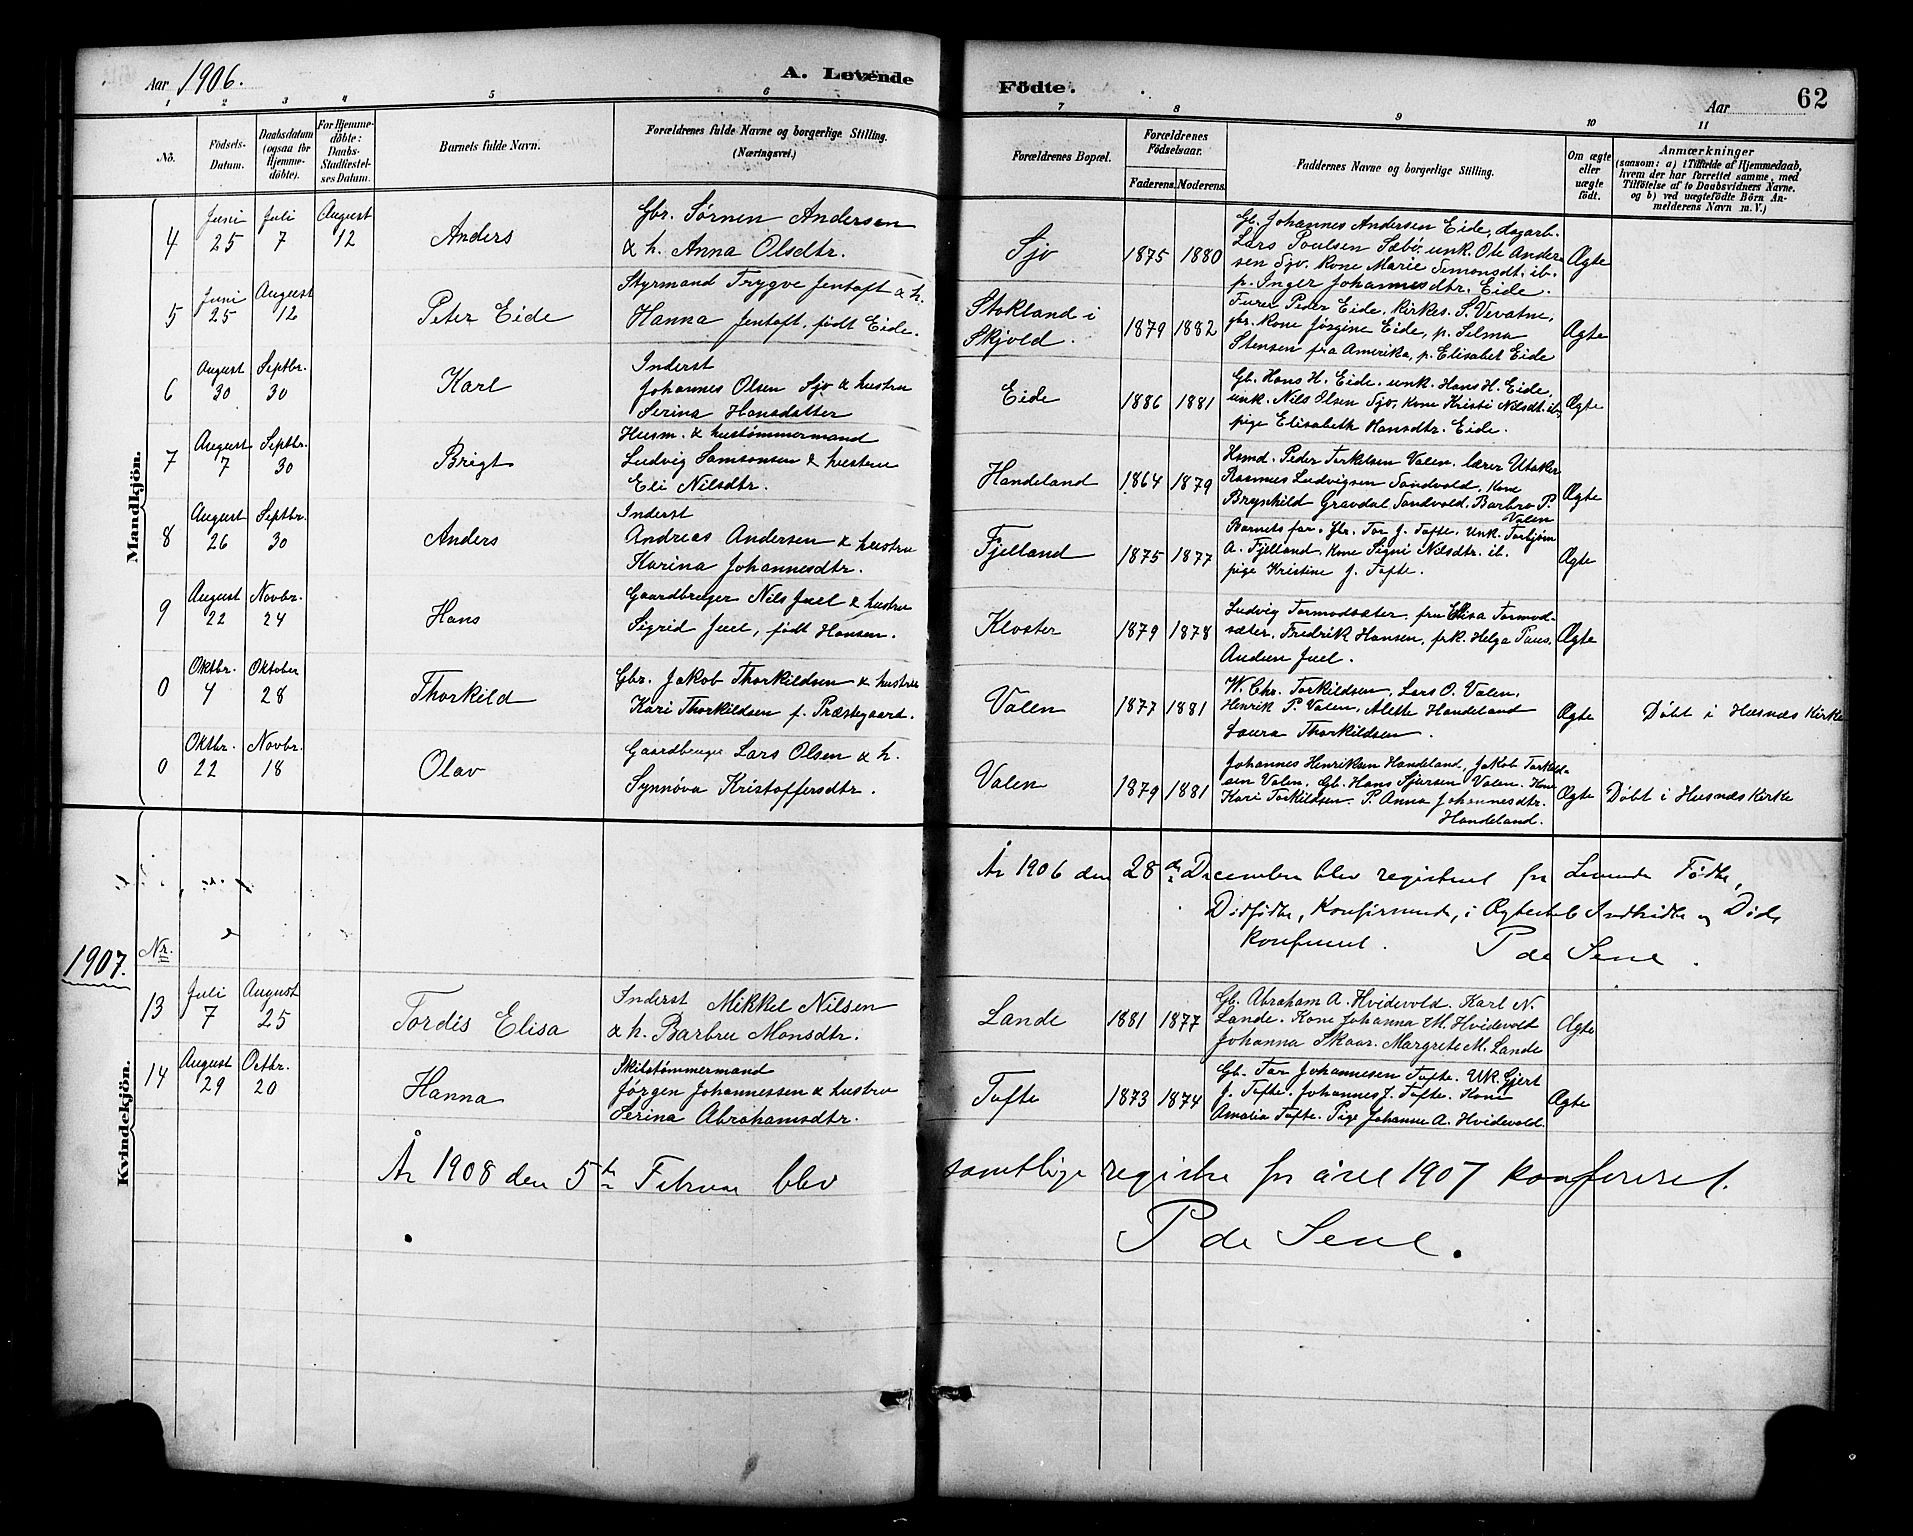 Aar 1906. A. Levende Födte. Aar 62
1 2 3 4 5 6 7 8 9 10 11
No. Födsels-Datum. Daabsdatum (ogsaa for Hjemme-döbte). For Hjemme-döbte: Daabs-Stadfæstel-ses Datum. Barnets fulde Navn. Forældrenes fulde Navne og borgerlige Stilling. (Næringsvei.) Forældrenes Bopæl. Forældrenes Födselsaar. Faderens. Moderens. Faddernes Navne og borgerlige Stilling. Om ægte eller uægte födt. Anmærkninger
(saasom: a) i Tilfælde af Hjemmedaab,
hvem der har forrettet samme, med
Tilföielse af to Daabsvidners Navne.
og b) ved uægtefödte Börn An-
melderens Navn m. V.)
Mandkjön.
4 Juni 25 Juli 7 August 12 Anders
Gbr. Sørnen Andersen
& h. Anna Olsdtr.
Sjo 1875 1880
Gb. Johannes Andersen Eide, dagarb.
Lars Poulsen Sæbø, unk. Ole Ander
sen Sjo. Kone Marie Simonsdt. ib.
p. Inger Johannesdtr. Eide.
Ægte
5 Juni 25 August 12 Peter Eide
Styrmand Trygve Jentoft & h.
Hanna Jentoft, født Eide.
Stokland i
Skjold. 1879 1882
Furer Peder Eide, Kirkes. S. Vevatne,
gbr. Kone Jørgine Eide, p. Selma
Stensen fra Amerika, p. Elisabet Eide
Ægte
6 August 30 Septbr. 30 Karl
Inderst
Johannes Olsen Sjo & hustru
Serina Hansdatter
Eide 1886 1881
Gb. Hans H. Eide. unk. Hans H. Eide,
unk. Nils Olsen Sjo, Kone Kristi Nilsdt. ib.
pige Elisabeth Hansdtr. Eide.
Ægte
7 August 7 Septbr. 30 Brigt
Husm. & hustømmermand
Ludvig Samsonsen & hustru
Eli Nilsdtr.
Handeland 1864 1879
Hsmd. Peder Torkelsen Valen. lærer Utaker
Rasmus Ludvigsen Sandvold, Kone
Brynhild Gravdal Sandvold. Barbro P.
Valen
Ægte
8 August 26 Septbr. 30 Anders
Inderst
Andreas Andersen & hustru
Karina Johannesdtr.
Fjelland 1875 1877
Barnets far. Gbr. Tor J. Tofte. Unk. Torbjørn
A. Fjelland, Kone Signi Nilsdtr. ib.
pige Kristine J. Tofte.
Ægte
9 August 22 Novbr. 24 Hans
Gaardbruger Nils Juel & hustru
Sigrid Juel, født Hansen.
Kloster 1879 1878
Ludvig Tormodsæter. fru Elisa Tormod
sæter, Fredrik Hansen, frk. Helga Paus.
Anders Juel.
Ægte
0 Oktbr. 4 Oktober 28 Thorkild
Gbr. Jakob Thorkildsen & hustru
Kari Thorkildsen f. Præstegaard.
Valen 1877 1881
W. Chr. Torkildsen, Lars O. Valen,
Henrik P. Valen, Alette Handeland
Laura Thorkildsen.
Ægte Døbt i Husnæs Kirke
0 Oktbr. 22 Novbr. 18 Olav
Gaardbruger Lars Olsen & h.
Synnøva Kristoffersdtr.
Valen 1879 1881
Johannes Henriksen Handeland, Jakob Torkild-
sen Valen, Gb. Hans Sjursen Valen. Kone
Kari Torkildsen. P. Anna Johannesdtr.
Handeland.
Ægte Døbt i Husnæs Kirke
År 1906 den 28de December blev registrene for Levende Fødte,
Dødfødte, Konfirmerede, i Ægteskab Indtrædte og Døde
konfereret. P de Seue.
1907. Nr.
Kvindekjön.
13 Juli 7 August 25 Tordis Elisa
Inderst Mikkel Nilsen
& h. Barbru Monsdtr.
Lande 1881 1877
Gb. Abraham A. Hvidevold. Karl N.
Lande. Kone Johanna M. Hvidevold
Johanna Skaar. Margrete M. Lande
Ægte
14 August 29 Octbr. 20 Hanna
Skibstømmermand
Jørgen Johannessen & hustru
Serina Abrahamsdtr.
Tofte 1873 1874
Gb. Tor Johannesen Tofte. Uk. Gjert
J. Tofte. Johannes J. Tofte. Kone
Amalia Tofte. Pige Johanne A. Hvidevold.
Ægte
År 1908 den 5te Februar blev samtlige registre for året 1907 konfereret.
P de Seue.